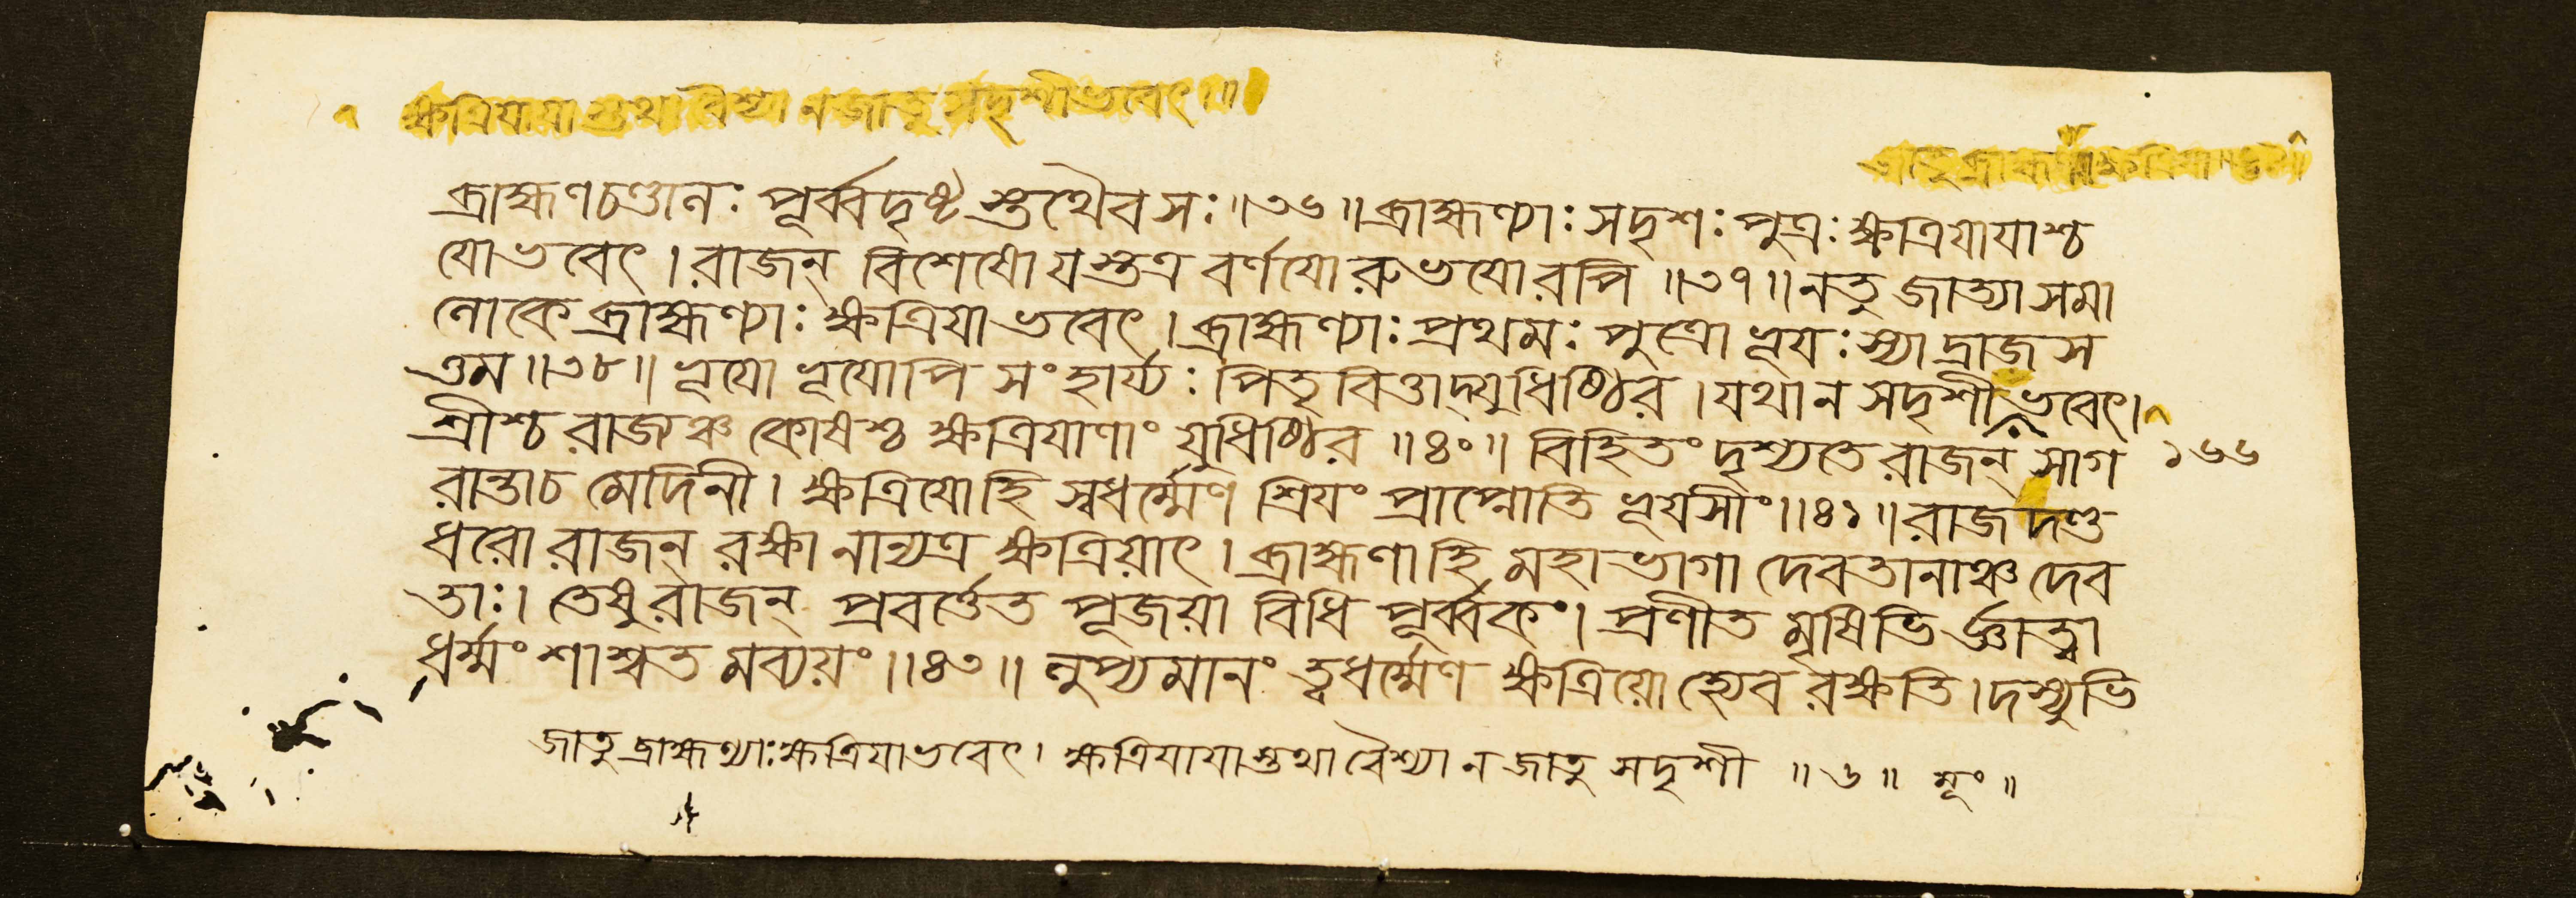 ক্ষত্রিযাযাস্তথা বৈশ্যা ন জাতু সদৃশীভবেৎ ॥
জাতু ব্রাহ্মণ্যাঃ ক্ষত্রিযা
ব্রাহ্মণচণ্ডালঃ পূর্ব্বদৃষ্টস্তথৈবসঃ ॥৩৬॥ ব্রাহ্মণ্যাঃ সদৃশঃ পুত্রঃ ক্ষত্রিযাযাশ্চ
যোভবেৎ । রাজন্ বিশেষো যস্তত্র বর্ণযোরুভযোরপি ॥৩৭॥ নতু জাত্যা সমা
লোকে ব্রাহ্মণ্যাঃ ক্ষত্রিযা ভবেৎ । ব্রাহ্মণ্যাঃ প্রথমঃ পুত্রো ভূযঃ স্যাদ্রাজস
ত্তম ॥৩৮॥ ভূযো ভূযোপি সংহার্য্যঃ পিতৃবিত্তাদ্যুধিষ্ঠির । যথা ন সদৃশী ভবেৎ ।
শ্রীশ্চ রাজ্যঞ্চ কোষশ্চ ক্ষত্রিযাণাং যুধিষ্ঠির ॥৪০॥ বিহিতং দৃশ্যতে রাজন্ সাগ ১৬৬
রান্তাচ মেদিনী । ক্ষত্রিযোহি স্বধর্ম্মেণ শ্রিযং প্রাপ্নোতি ভূযসীং ॥৪১॥ রাজদণ্ড
ধরো রাজন্ রক্ষা নান্যত্র ক্ষত্রিয়াৎ । ব্রাহ্মণাহি মহাভাগা দেবতানাঞ্চ দেব
তাঃ । তেষু রাজন্ প্রবর্ত্তেত পূজয়া বিধিপূর্ব্বকং । প্রণীতমৃষিভির্জ্ঞাত্বা
ধর্ম্মং শাশ্বতমব্যয়ং ॥৪৩॥ লুপ্যমানং ত্বধর্ম্মেণ ক্ষত্রিয়োহ্যেব রক্ষতি । দস্যুভি
জাতু ব্রাহ্মণ্যাঃ ক্ষত্রিযাভবেৎ । ক্ষত্রিযাযাস্তথা বৈশ্যা ন জাতু সদৃশী ॥৬॥ মূং ॥